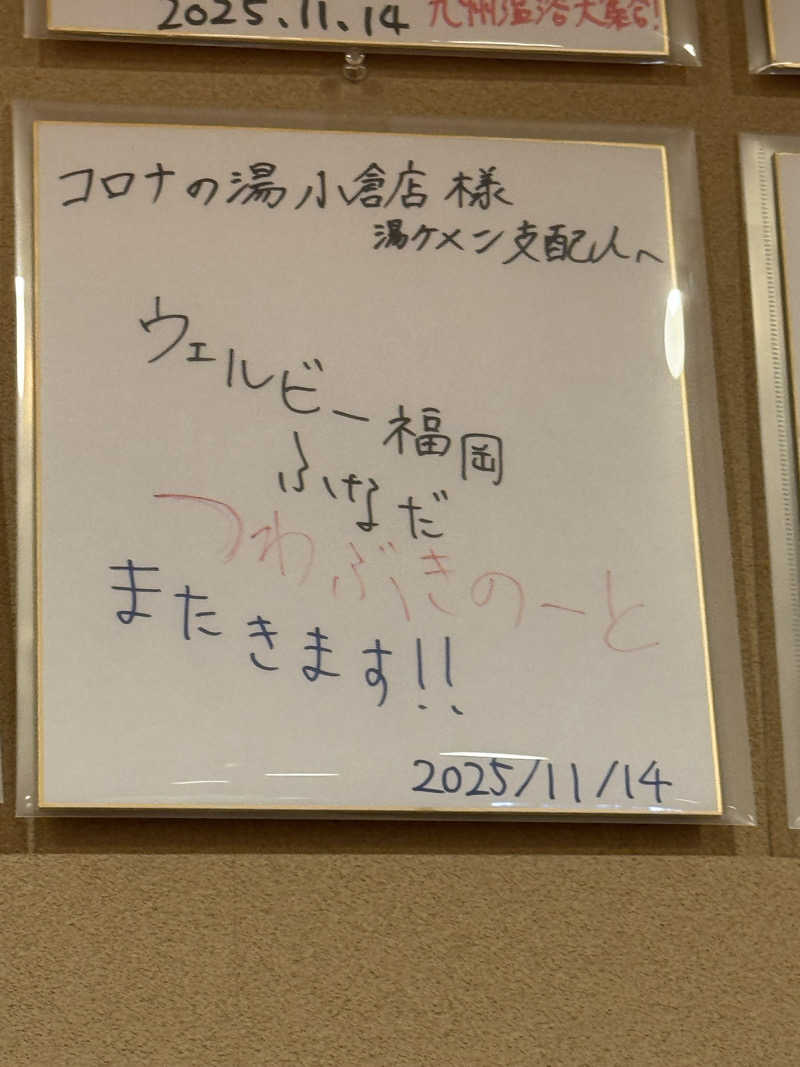 2025.11.14 九州温浴大集合!
コロナの湯 小倉店 様
湯ケメン支配人へ
ウェルビー福岡
ふけなだ
つわぶきのーと
またきます!!
2025/11/14